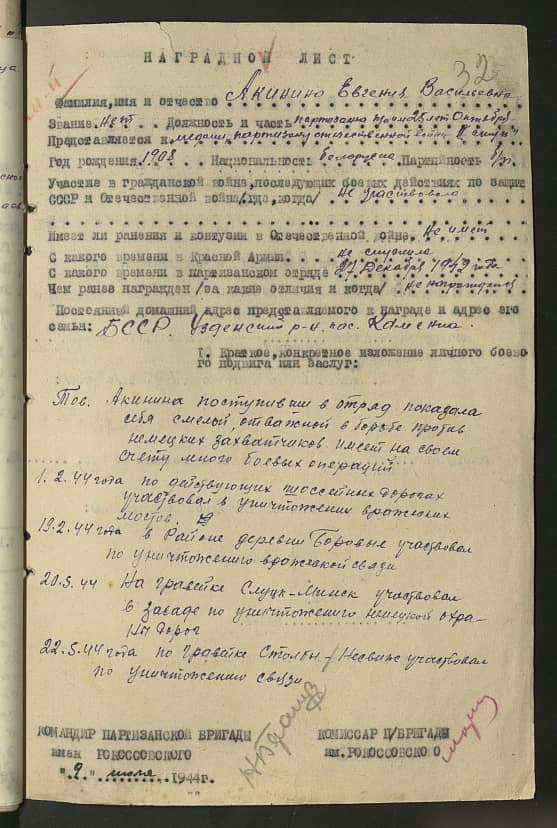 32
НАГРАДНОЙ ЛИСТ
Фамилия, имя и отчество Акинино Евгения Васильевна
Звание Нет. Должность и часть партизата 25 лет Октября
Представляется к медали "партизану отечественной войны II степ."
Год рождения 1908. Национальность белоруска. Партийность б/п.
Участие в гражданской война, последующих боевых действиях по защит
СССР и Отечественной война/где, когда/ не участвовала
Имеет ли ранения и контузии в Отечественной войне. Не имеет
С какого времени в Красной Армии. не служила
С какого времени в партизанском отряде 27 Декабря 1942 года
Чем ранее награжден /за какие отличия и когда/ не награждался
Постоянный домашний адрес представляемого к награде и адрес его
семьи: БССР. Узденский р-н. пос. Каменка.
I. Краткое, конкретное изложение личного боево
го подвига или заслуг:
Тов. Акинина поступивши в отряд показала
себя смелой, отважной в борьбе против
немецких захватчиков. Имеет на своем
счету много боевых операций
1.2.44 года по действующих шоссейных дорогах
участвовал в уничтожении вражеских
мостов.
19.2.44 года в Районе деревни Боровые участвовал
по уничтожению вражеской связи
20.5.44 На гравейке Слуцк-Минск участвовал
в засаде по уничтожению немецкой охра-
ны дорог
22.5.44 года по гравейке Столбцы-Несвиж участвовал
по уничтожению связи.
КОМАНДИР ПАРТИЗАНСКОЙ БРИГАДЫ
имени РОКОССОВСКОГО
"9." июля 1944г.
КОМИССАР П/БРИГАДЫ
им. РОКОССОВСКОГО